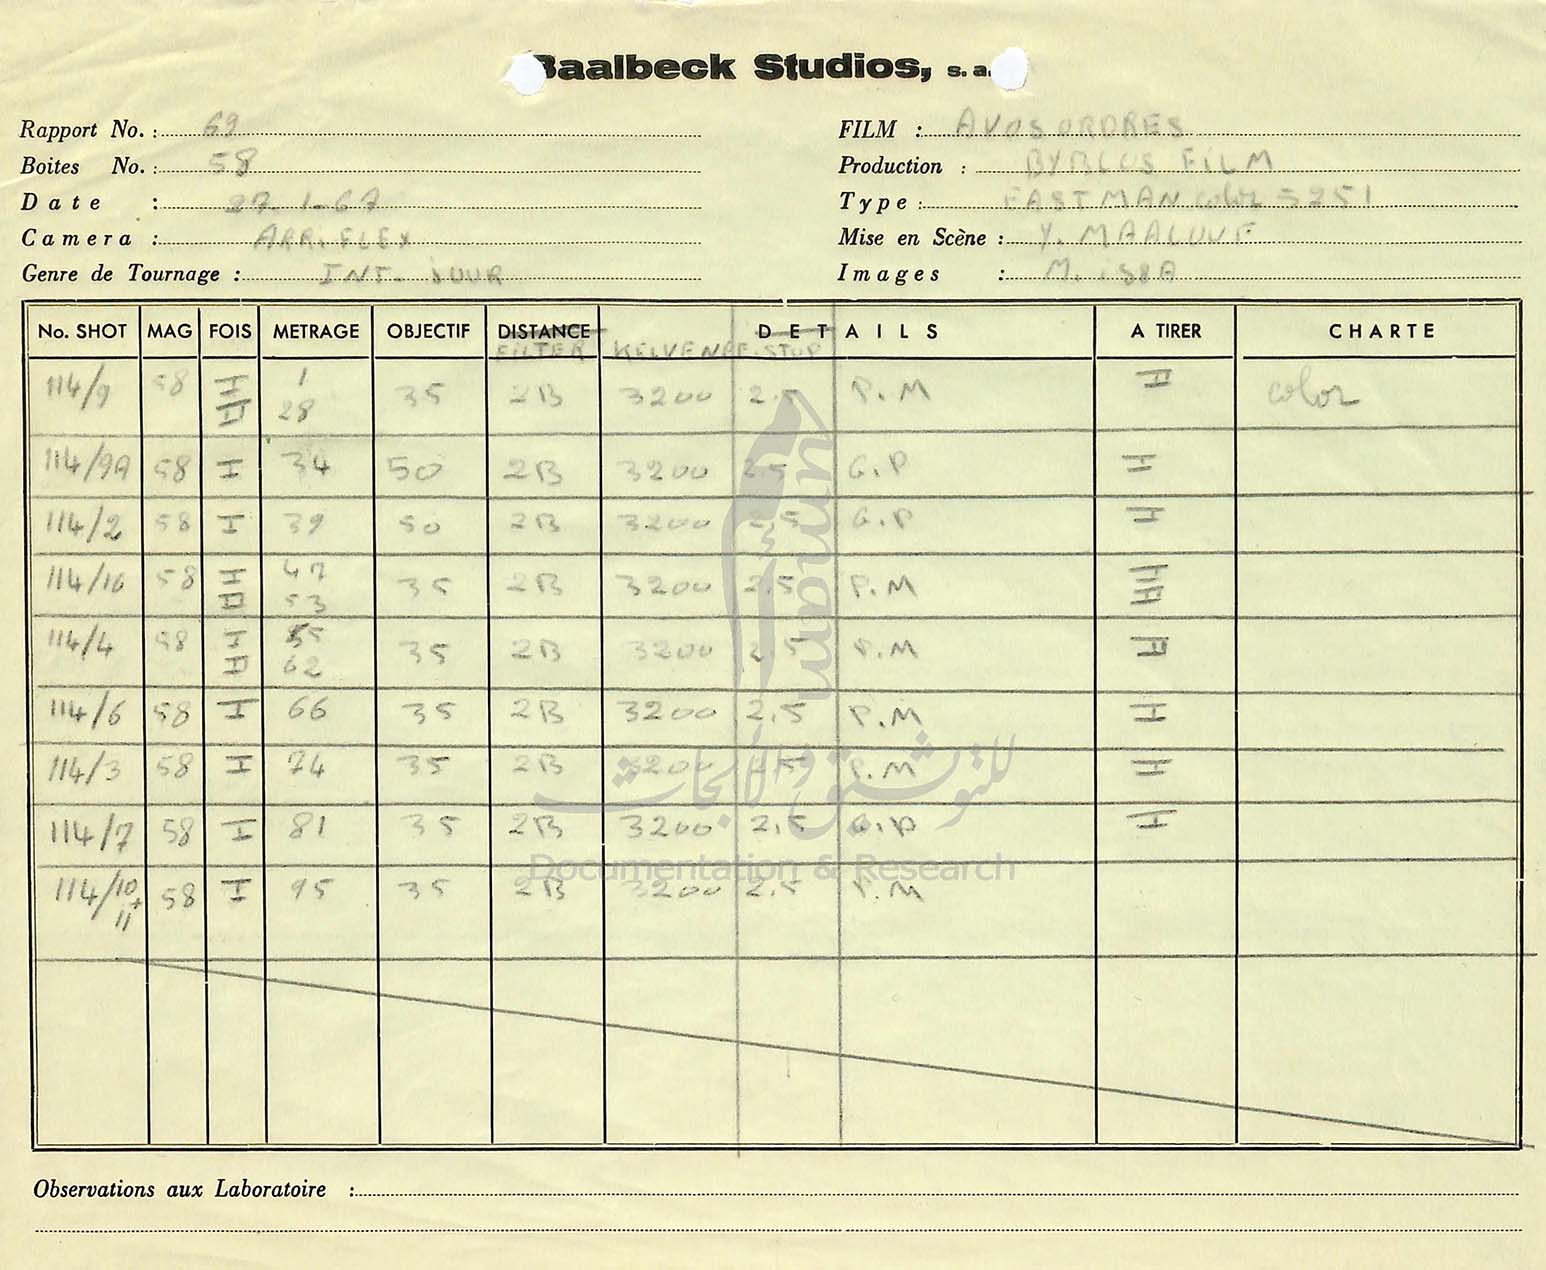 Baalbeck Studios, s. a.
Rapport No. : 69
Boites No. : 58
Date : 27-1-67
Camera : ARRIFLEX
Genre de Tournage : INT- JOUR
FILM : AVOS ORDRES
Production : BYBLOS FILM
Type : EASTMAN color 5251
Mise en Scène : Y. MAALOUF
Images : M. iSSA
No. SHOT MAG FOIS METRAGE OBJECTIF DISTANCE DETAILS A TIRER CHARTE
FILTER KELVENE F.STOP
114/9 58 1 28 35 2B 3200 2.5 P.M color
114/9A 58 I 34 50 2B 3200 2.5 G.P
114/2 58 I 39 50 2B 3200 2.5 G.P
114/16 58 I II 47 53 35 2B 3200 2.5 P.M
114/4 58 I II 55 62 35 2B 3200 2.5 P.M
114/6 58 I 66 35 2B 3200 2.5 P.M I
114/3 58 I 74 35 2B 3200 2.5 P.M I
114/7 58 I 81 35 2B 3200 2.5 G.P I
114/10+11 58 I 95 35 2B 3200 2.5 P.M
umam
للتوثيق والأبحاث
Documentation & Research
Observations aux Laboratoire :